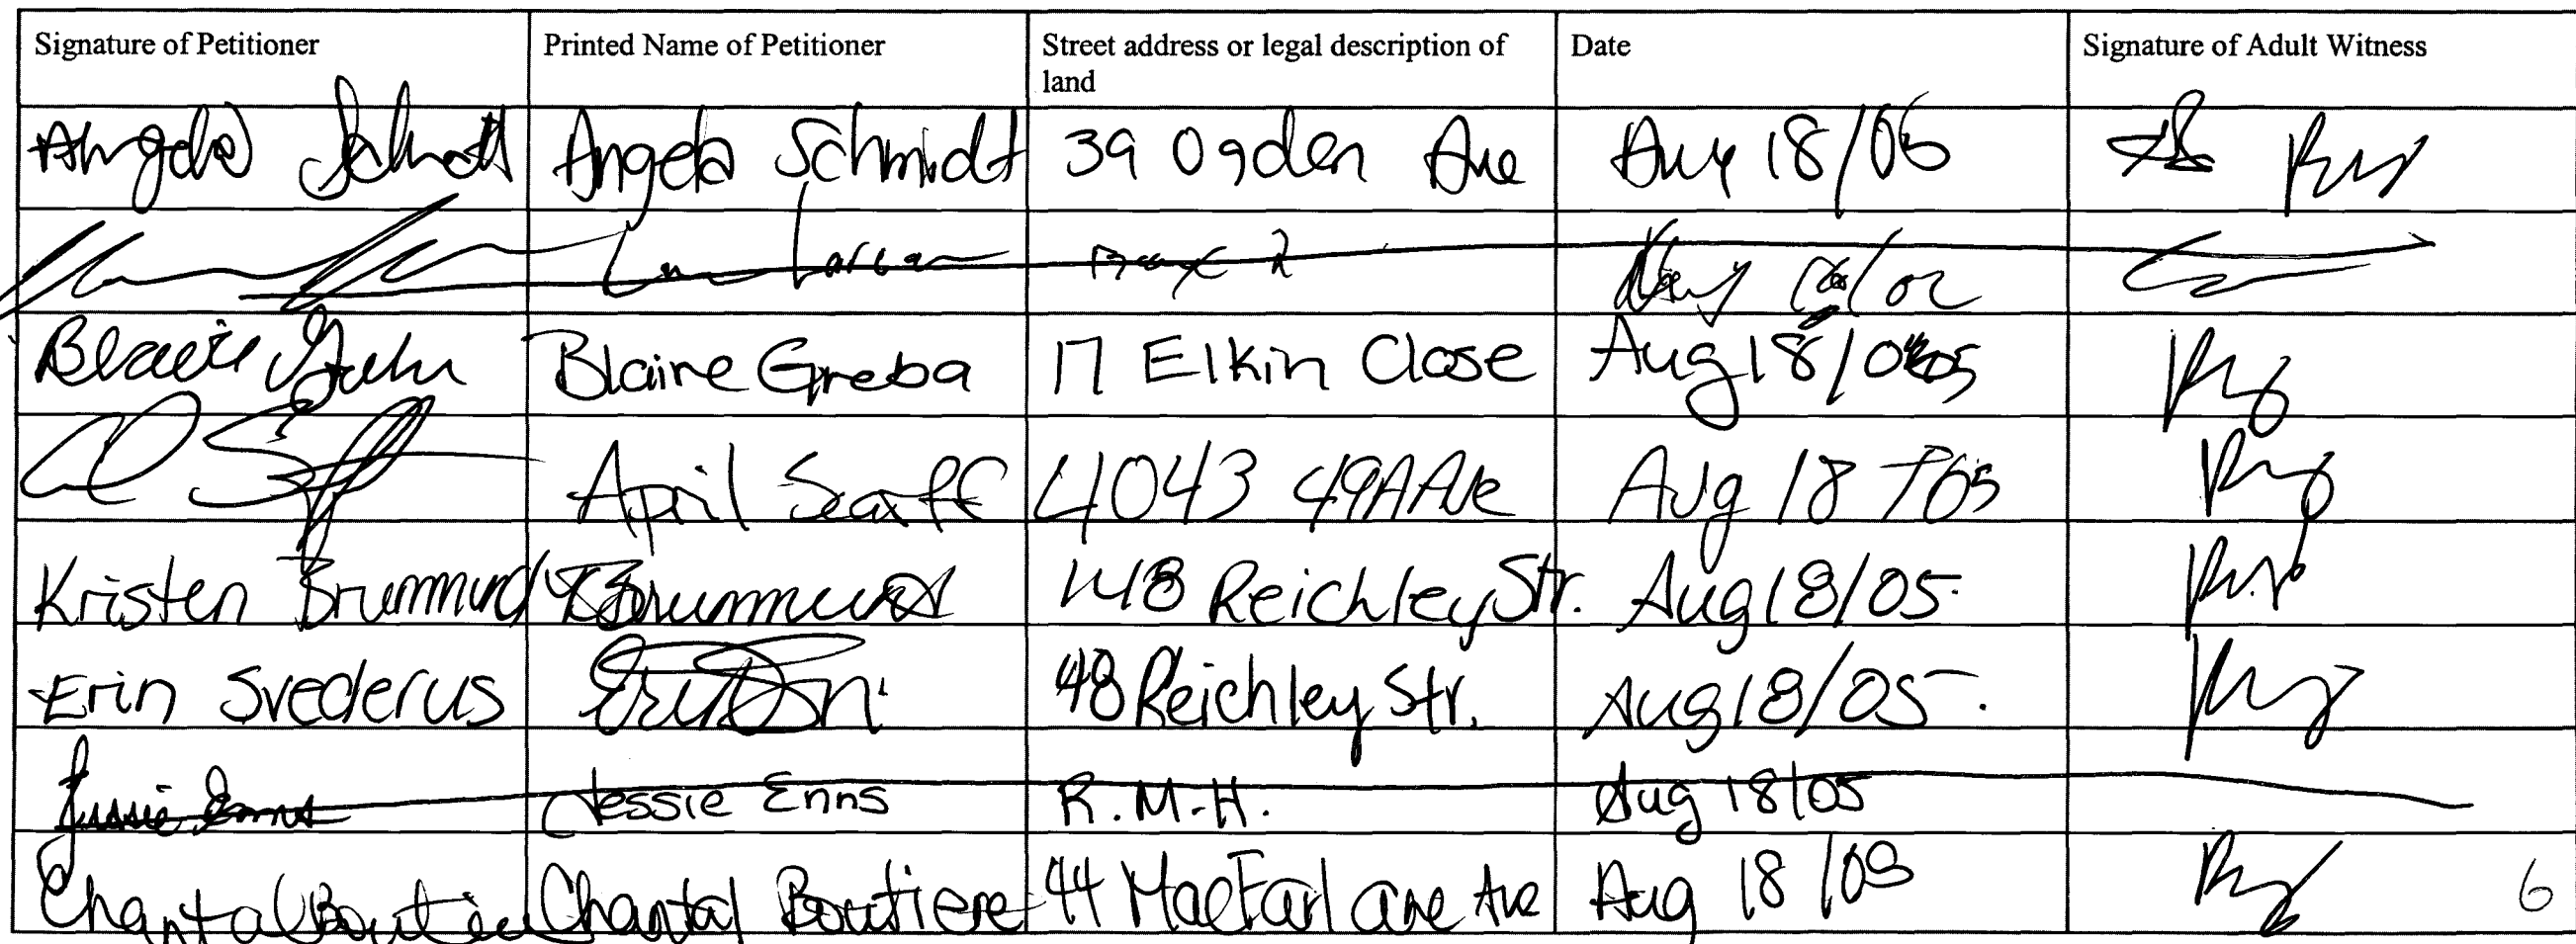 Signature of Petitioner Printed Name of Petitioner Street address or legal description of land Date Signature of Adult Witness
Angela Schmidt Angela Schmidt 39 Ogden Ave Aug 18/05
Larsen
Blaine Greba Blaine Greba 17 Elkin Close Aug 18/05
April Scarff 4043 49A Ave Aug 18 /05
Kristen Brummund KBrummund 148 Reichley Str. Aug 18/05
Erin Svederus 48 Reichley Str. Aug 18/05
Jessie Enns Jessie Enns R.M.H. Aug 18/05
Chantal Boutiere Chantal Boutiere 44 MacFarlane Ave Aug 18/05 6